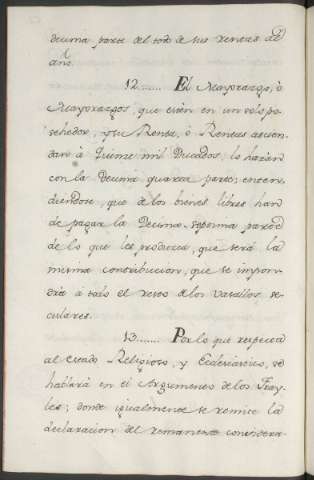 decima parte del todo de sus rentas al
año.
12....... El Mayorazgo, ò
Mayorazgos, que estèn en un solo po-
sehedor, y su Renta, ò Rentas ascien-
dan à Quince mil Ducados, lo haràn
con la Decima quarta parte; enten-
diendose, que de los bienes libres han
de pagar la Decima-septima parte
de lo que les produzca, que serà la
misma contribucion, que se impon-
drà à todo el resto de los vasallos, se-
culares.
13....... Por lo que respecta
al estado Religioso, y Eclesiastico, se
hablarà en el Argumento de los Fray-
les; donde igualmente se remite la
declaracion del remanente considera-